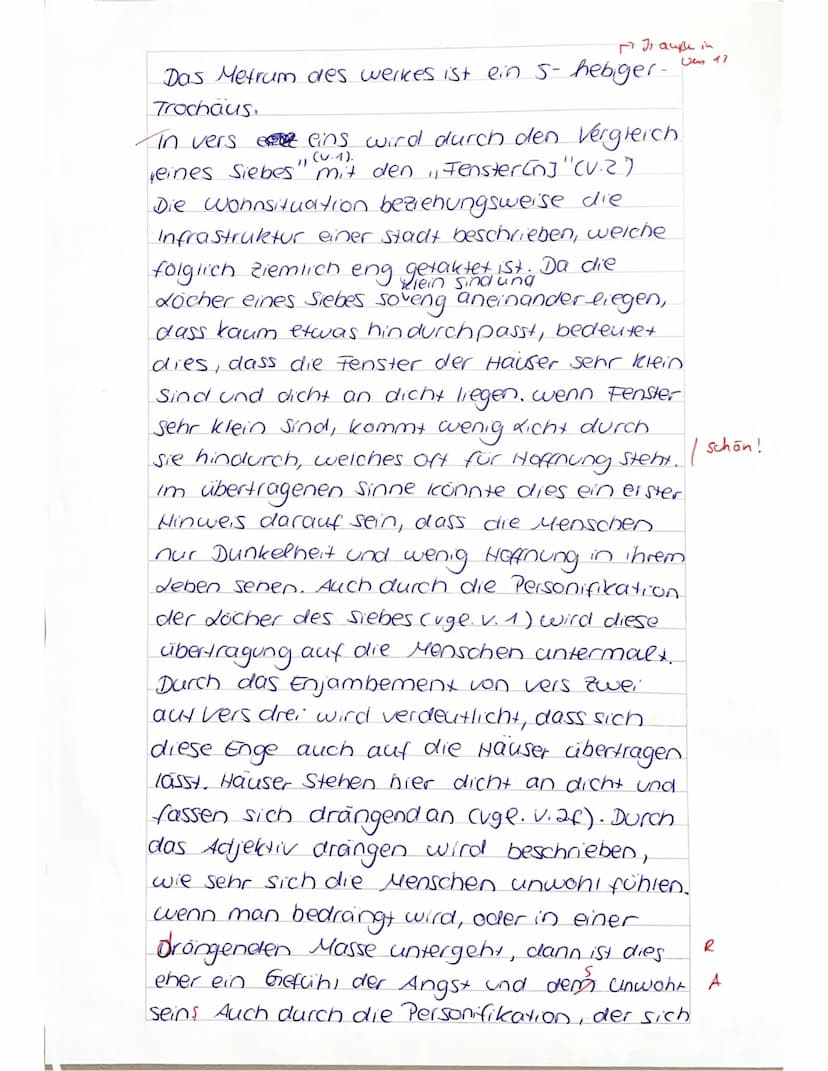 Ir auße in
Vers 1?
Das Metrum des Werkes ist ein 5-hebiger-
Trochäus.
In Vers eins wird durch den Vergleich
„eines Siebes" (V.1). mit den „Fenster[n]" (V.2)
Die Wohnsituation beziehungsweise die
Infrastruktur einer Stadt beschrieben, welche
folglich ziemlich eng getaktet ist. Da die
klein sind und
Löcher eines Siebes so eng aneinander liegen,
dass kaum etwas hindurchpasst, bedeutet
dies, dass die Fenster der Häuser sehr klein
sind und dicht an dicht liegen. Wenn Fenster
sehr klein sind, kommt wenig Licht durch
sie hindurch, welches oft für Hoffnung steht. schön!
Im übertragenen Sinne könnte dies ein erster
Hinweis darauf sein, dass die Menschen
nur Dunkelheit und wenig Hoffnung in ihrem
Leben sehen. Auch durch die Personifikation
der Löcher des Siebes (vgl. V. 1) wird diese
Übertragung auf die Menschen untermalt.
Durch das Enjambement von Vers zwei
auf Vers drei wird verdeutlicht, dass sich
diese Enge auch auf die Häuser übertragen
lässt. Häuser stehen hier dicht an dicht und
fassen sich drängend an (vgl. V. 2f). Durch
das Adjektiv drängen wird beschrieben,
wie sehr sich die Menschen unwohl fühlen.
Wenn man bedrängt wird, oder in einer
drängenden Masse untergeht, dann ist dies R
eher ein Gefühl der Angst und des unwohl A
seins Auch durch die Personifikation, der sich